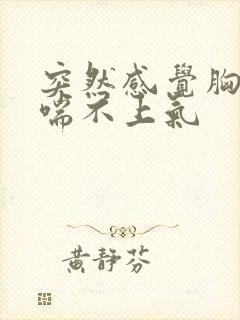 突然感覺胸
喘不上氣
黃靜芬